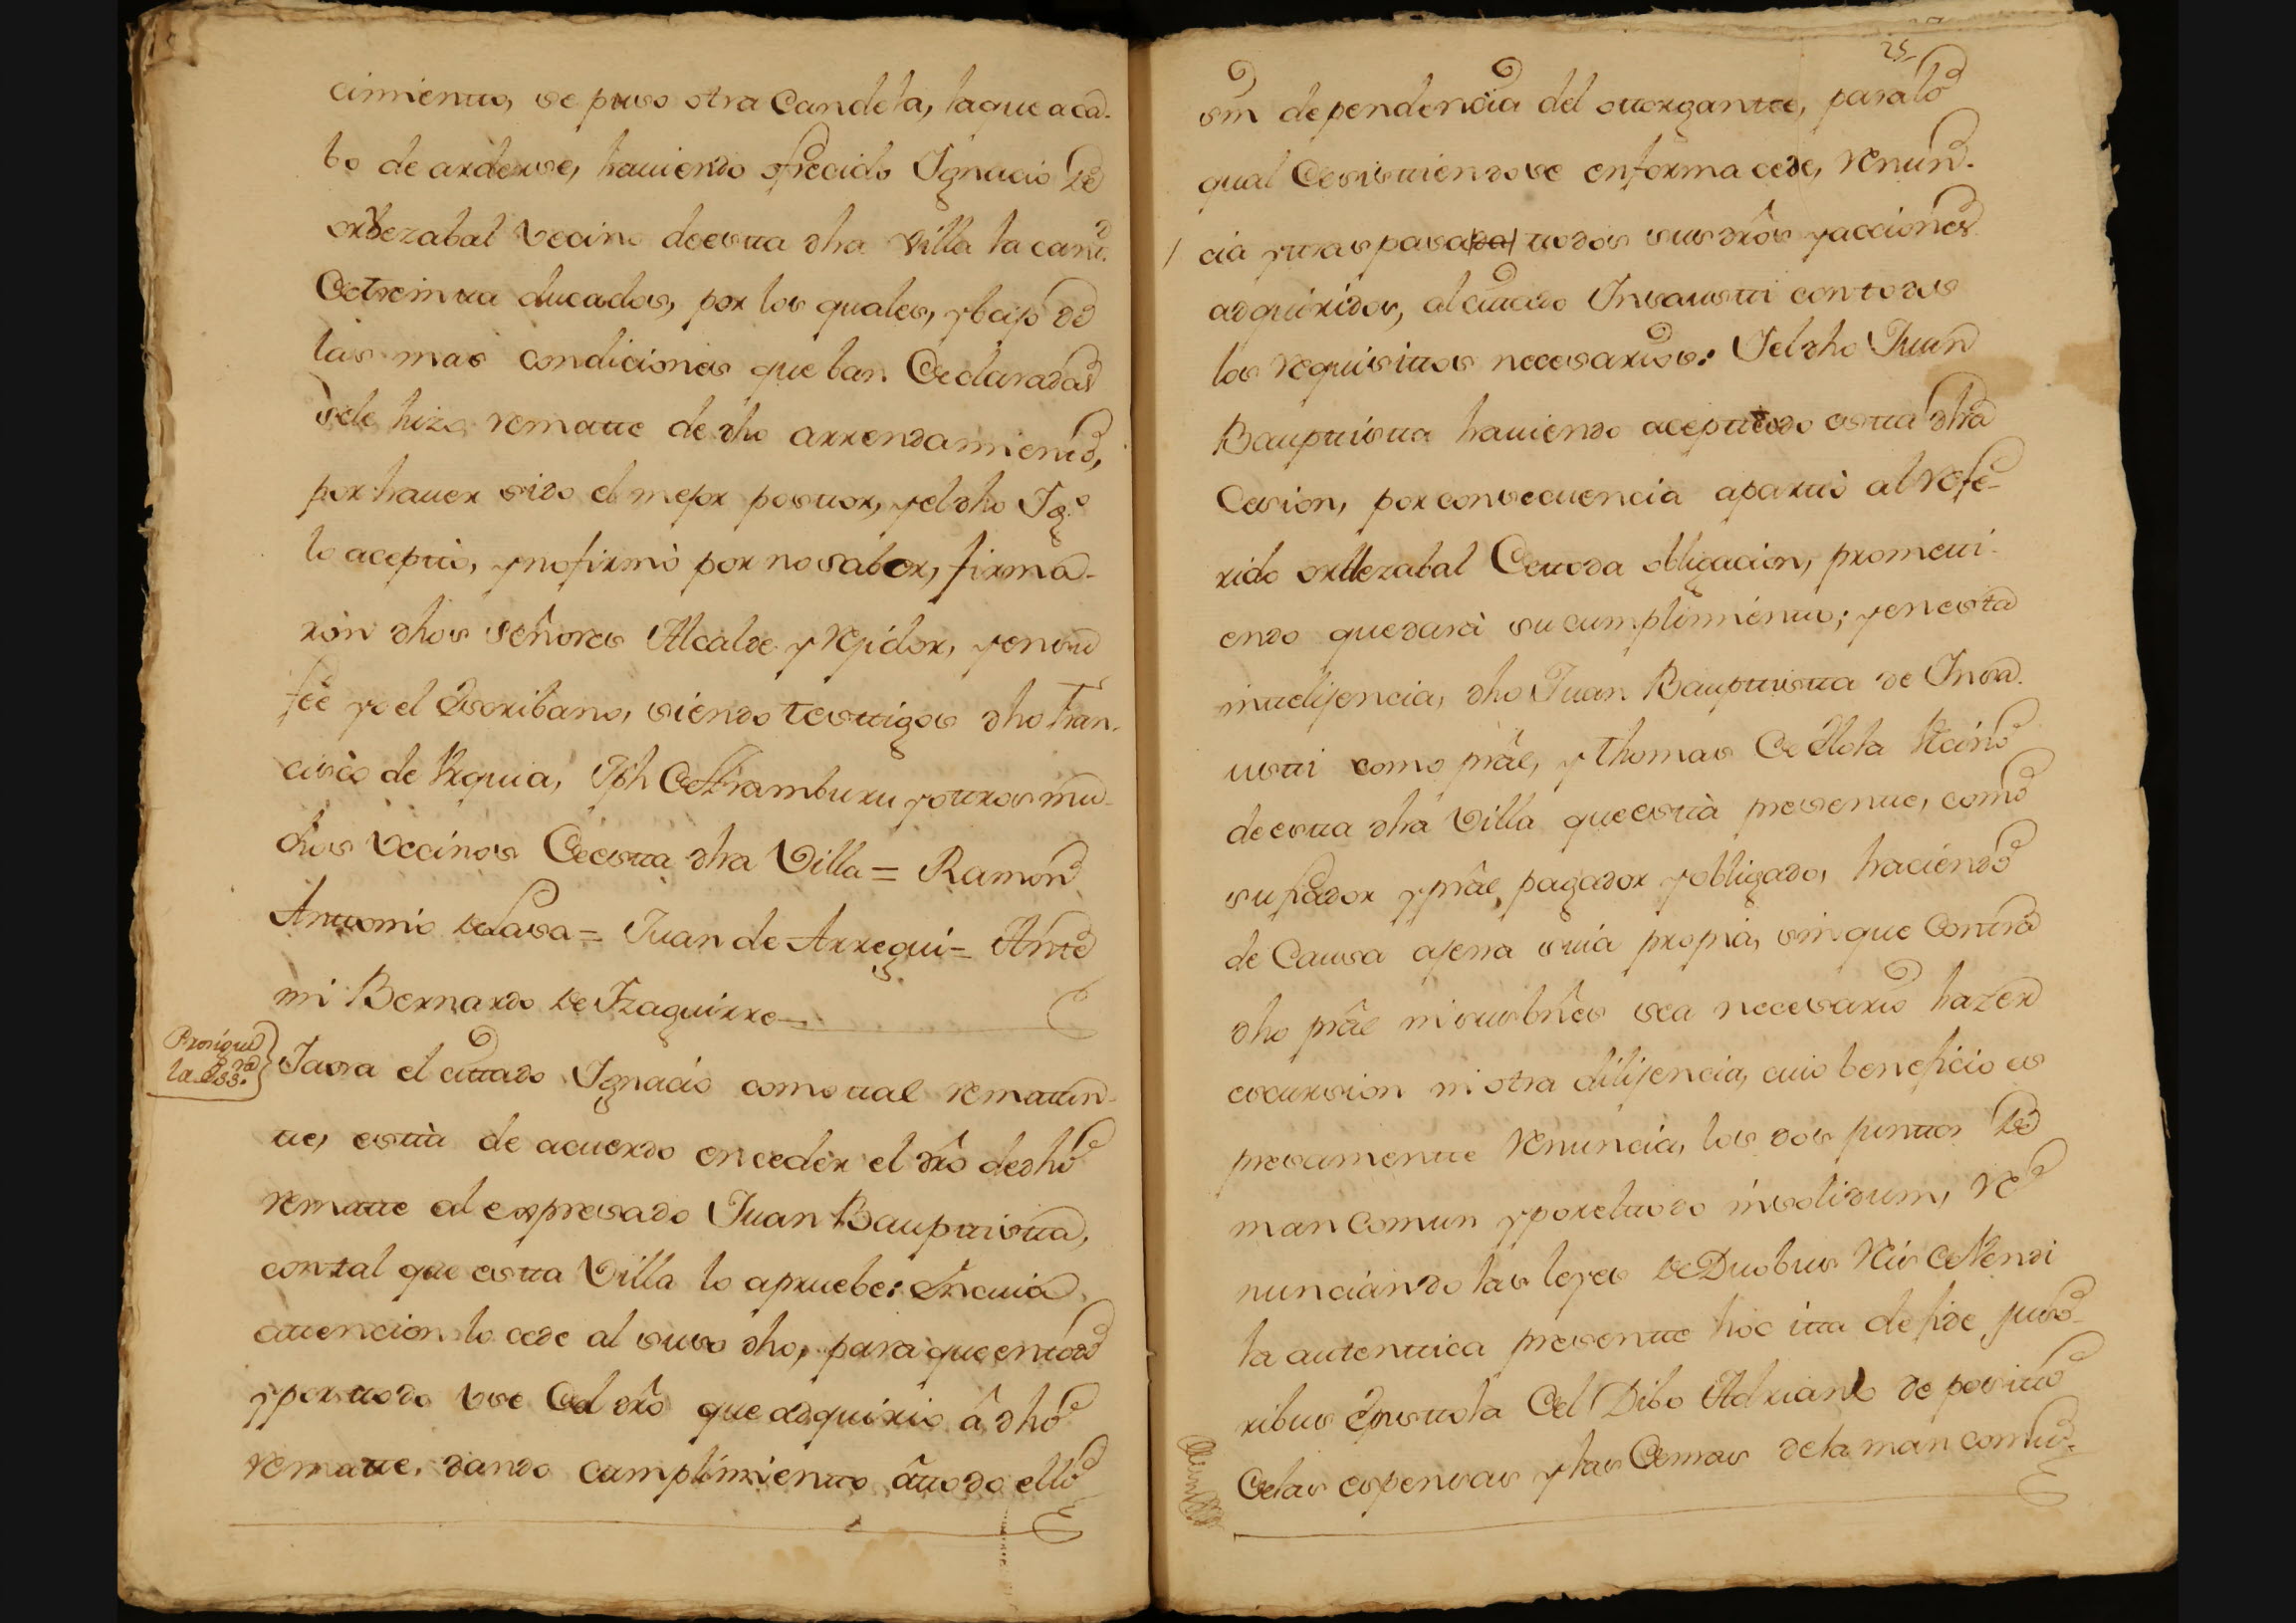 cimientto, se puso otra Candela, la que aca-
bo de arderse, hauiendo ofrecido Ignacio de
orbezabal Vecino de estta dha Villa la cantt.d
de treintta ducados, por los quales, y bajo de
las mas condiciones que ban declaradas
se le hizo rematte de dho arrendamientto,
por hauer sido el mejor posttor, y el dho Ig.o
lo acepttò, y no firmò por no saber, firma-
ron dhos Señores Alcalde y rejidor, y en su
feè yo el Escribano, siendo testtigos dho Fran-
cisco de Vrquia, Jph de Aramburu y ottros mu-
chos Vecinos de estta dha Villa = Ramon
Anttonio de Lasa = Juan de Arregui = Ante
mi Bernardo de Yzaguirre =
Prosigue
la Ess.ra
Iasra el cittado Ignacio como ttal remattan-
tte, esttà de acuerdo en ceder el drô de dho
rematte al expresado Juan Baupttistta,
con tal que estta Villa lo apruebe: En cuia
attencion lo cede al suso dho, para que en ttodo
y por ttodo vse del drô que adquirio â dho
rematte, dando cumplimientto â ttodo ello
25
sin dependencia del ottorgantte, para lo
qual desisttiendose en forma cede, renun-
cia y ttraspasa ttodos sus drôs y acciones
adquiridos, al cittado Insaustti con todos
los requisittos necesarios: Y el dho Juan
Baupttistta hauiendo acepttado estta dha
Cesion, por consecuencia aparttò al refe-
rido orbezabal de ttoda obligacion, prometti-
endo que darà su cumplimientto; y en esta
inttelijencia, dho Juan Baupttistta de Insa-
ustti como prâl, y Thomas de Olola Vecino
de estta dha Villa que esttà presentte, como
su fiador y prâl pagador y obligado, haciendo
de Causa ajena suia propia, sin que Contra
dho prâl ni sus bnês sea necesario hazer
escursion ni otra dilijencia, cuio beneficio es
presamentte renuncia, los dos junttos de
man comun y por el ttodo insolidum, re-
nunciando las leyes de Duobus reis devendi
la autenttica presentte hoc itta de fide juso-
ribus Episttola del Dibo Adriano de posittio
de las espensas y las demas de la man comu-